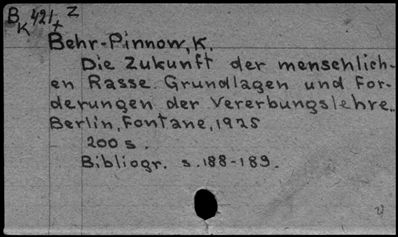 BK 421+Z
Behr-Pinnow, K.
Die Zukunft der menschlich-
en Rasse. Grundlagen und For-
derungen der Vererbungslehre.
Berlin, Fontane, 1925
200 s.
Bibliogr. s. 188-189.